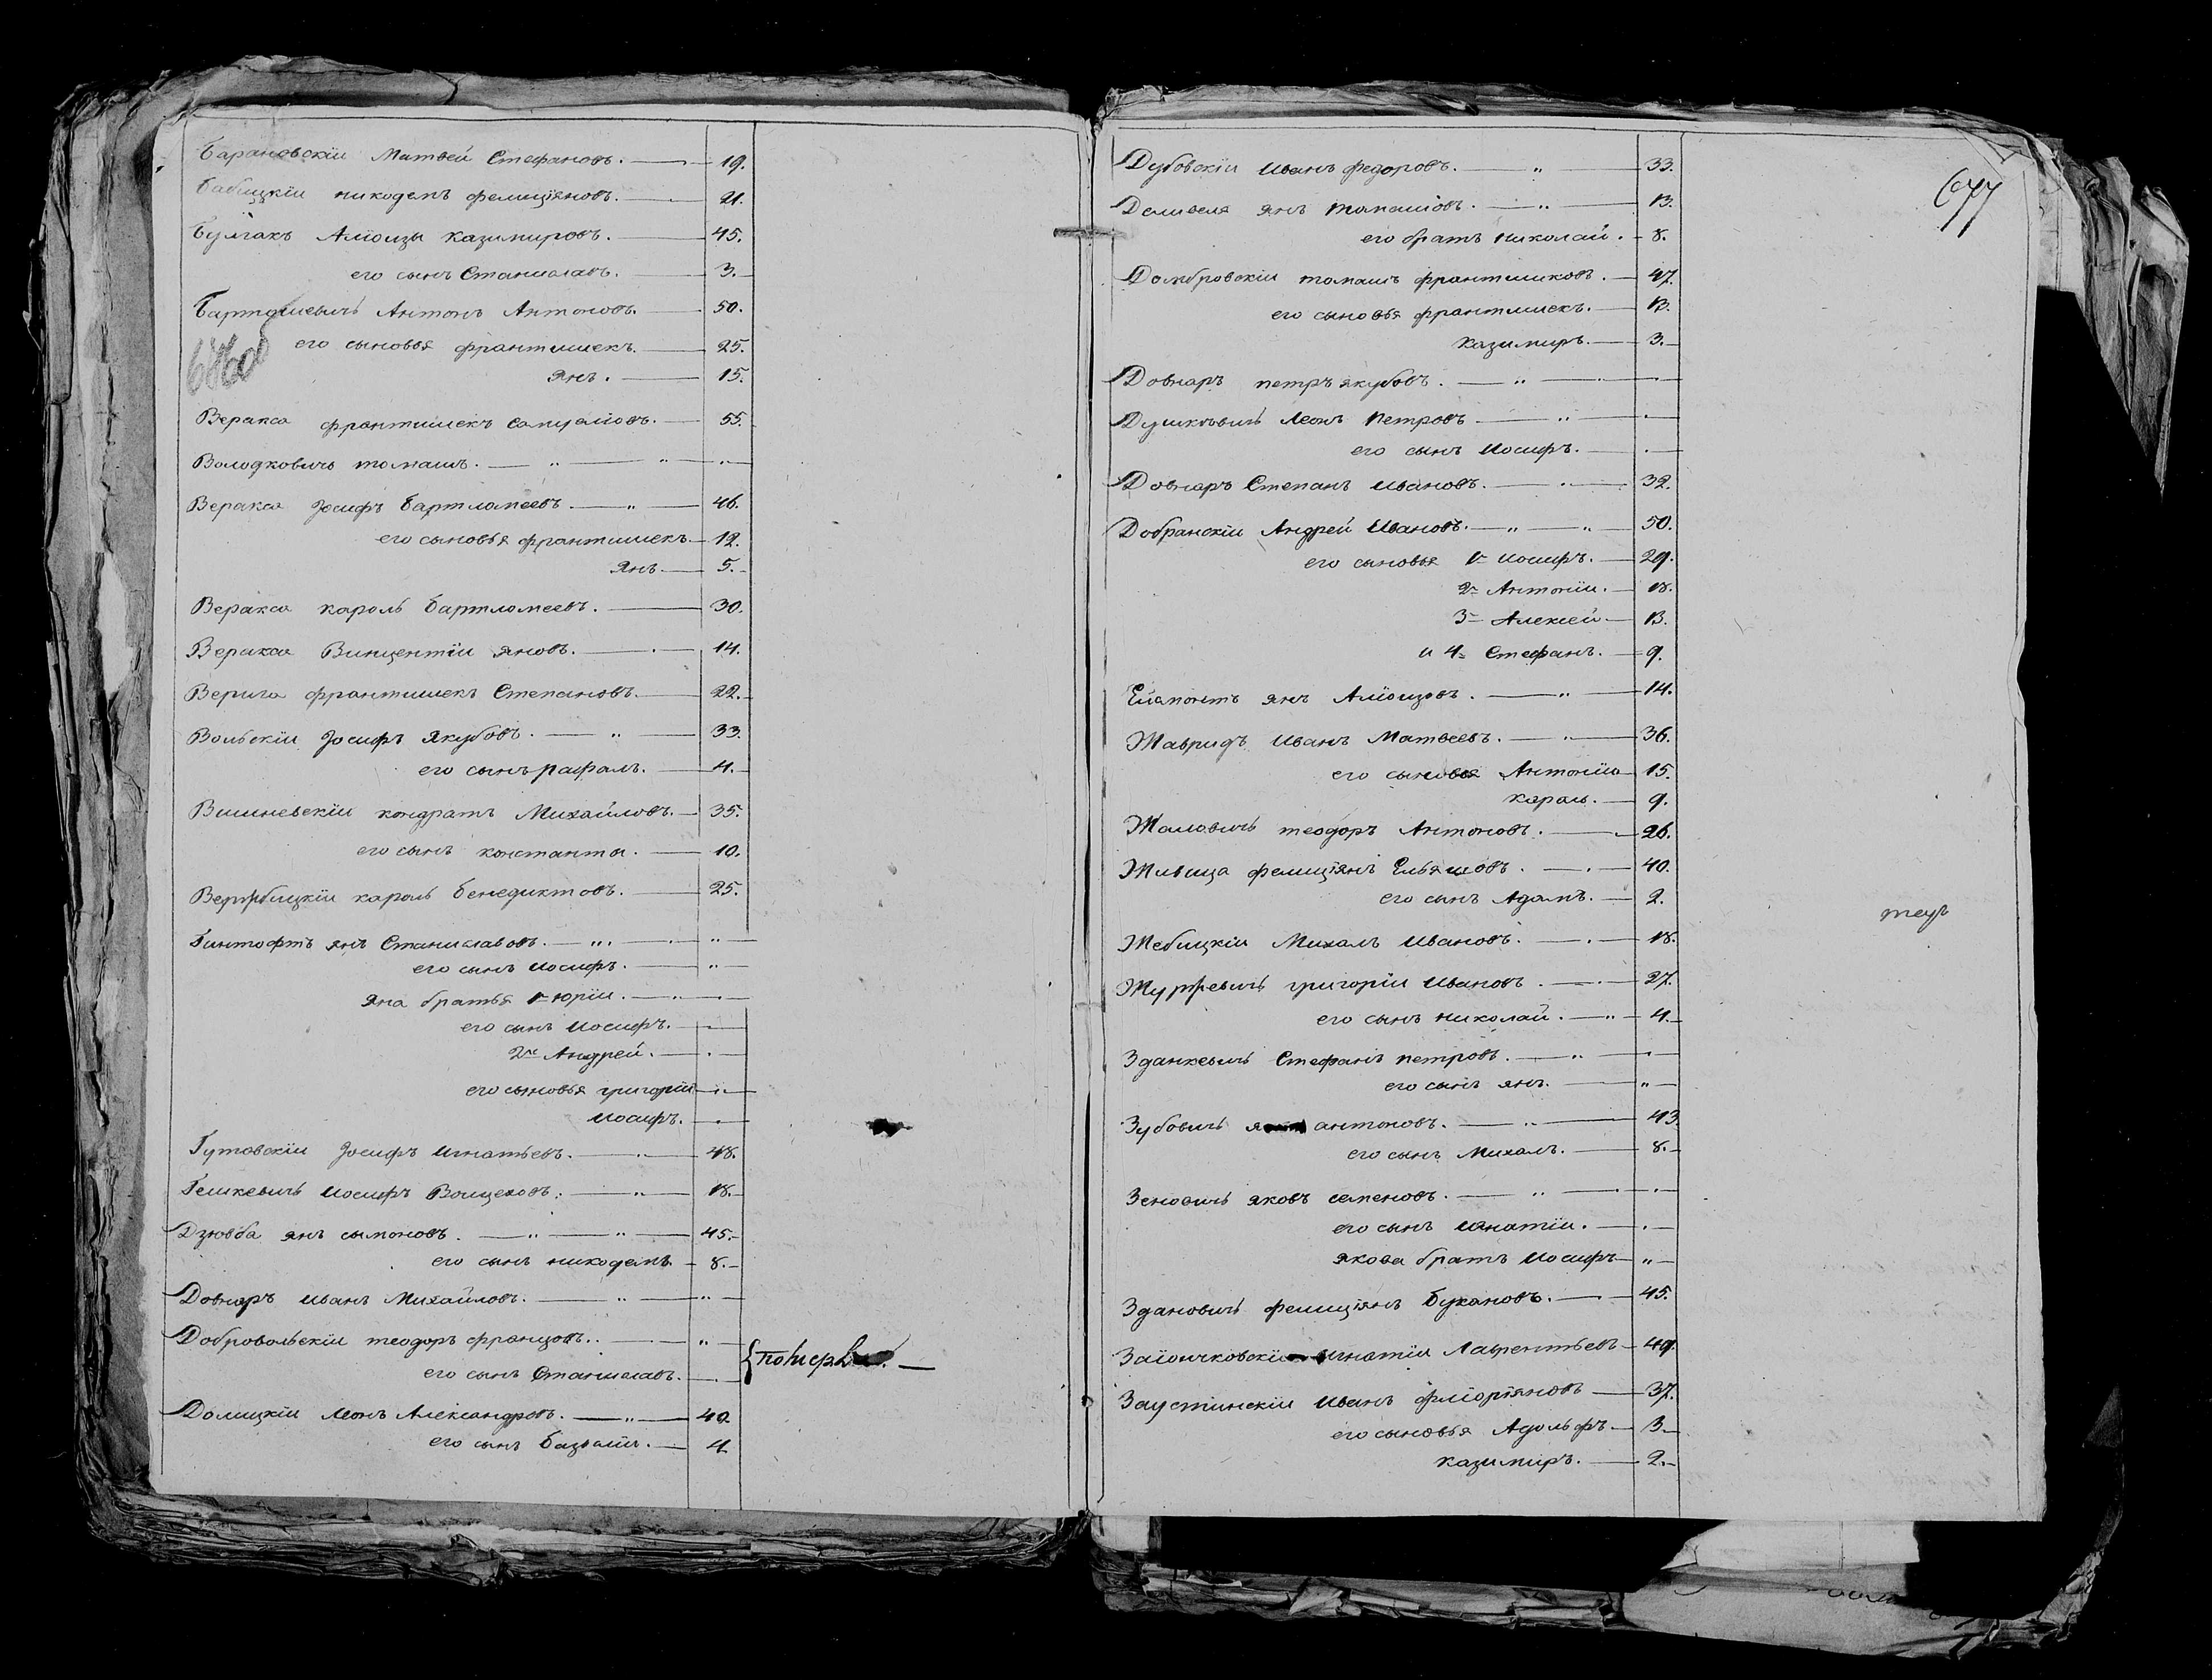 Барановскій Матвей Стефановъ. — 19.
Бабицкій никодемъ фелиціяновъ. — 21.
Булгакъ Алюизы Казимировъ. — 45.
его сынъ Станиславъ. — 3.
Бартошевичь Антонъ Антоновъ. — 50.
его сыновья франтишекъ. — 25.
янъ. — 15.
Веракса франтишекъ самуеліовъ. — 55.
Володковичь томашъ. — „ — „ — „ —
Веракса Іосифъ Бартломеевъ. — „ — 46.
его сыновья франтишекъ. — 12.
янъ — 5.
Веракса кароль Бартломеевъ. — 30.
Веракса Винцентій яновъ. — 14.
Верига франтишекъ Степановъ. — 22.
Вольскій Іосифъ якубовъ. — „ — 33.
его сынъ рафалъ. — 4.
Вишневскій кондратъ Михайловъ. — 35.
его сынъ константы. — 10.
Вержбицкій кароль Бенедиктовъ. — 25.
Гинтофтъ янъ Станиславовъ. — „ — „ —
его сынъ иосифъ. — „ —
яна братья 1- юрій. — „ —
его сынъ иосифъ. — „ —
2- Андрей. — „ —
его сыновья григорій — „ —
иосифъ. — „ —
Гутовскій Іосифъ игнатьевъ. — 48.
Гешкевичь иосифъ Войцеховъ. — „ — 18.
Дзюбба янъ сымоновъ. — „ — „ — 45.
его сынъ никодемъ. — 8.
Довнаръ иванъ Михайловъ. — „ — „ —
Добровольскій теодоръ францовъ. — „ —
его сынъ Станиславъ. — „ —
Долицкій леонъ Александровъ. — „ — 40.
его сынъ Базылій. — 4
677
Дубовскій иванъ федоровъ. — „ — 33.
янъ томашовъ. — „ — 13.
его братъ николай. — 8.
Домбровскій томашъ франтишковъ. — 47.
его сыновья франтишекъ. — 13.
Казимиръ. — 3.
Довнаръ петръ якубовъ. — „ —
Душкевичь леонъ петровъ — „ —
его сынъ иосифъ. —
Довнаръ Степанъ ивановъ. — 32.
Добранскій Андрей ивановъ. — „ — „ — 50.
его сыновья 1- иосифъ. — 29.
2- Антоній. — 18.
3- Алексей — 13.
и 4- Стефанъ. — 9.
янъ Алюизовъ. — „ — 14.
Жавридъ иванъ Матвеевъ. — „ — 36.
его сыновья Антоній — 15.
кароль. — 9.
Жаловичь теодоръ Антоновъ. — 26.
Живица фелиціянъ Ельяшовъ. — 40.
его сынъ Адамъ. — 2.
теуъ
Жебицкій Михалъ ивановъ. — 18.
Журжевичь григорій ивановъ. — 27.
его сынъ николай. — „ — 4.
Зданкевичь Стефанъ петровъ. — „ —
его сынъ янъ. — „ —
Зубовичь антоновъ. — „ — 43
его сынъ Михалъ. — 8.
Зеновичь яковъ семеновъ. — „ —
его сынъ игнатій. —
якова братъ иосифъ — „ —
Здановичь фелиціянъ — 45.
Заіончковскій игнатій лаврентьевъ — 49.
Заустинскій иванъ флоріяновъ — 37.
его сыновья Адольфъ — 3
казимиръ. — 2.